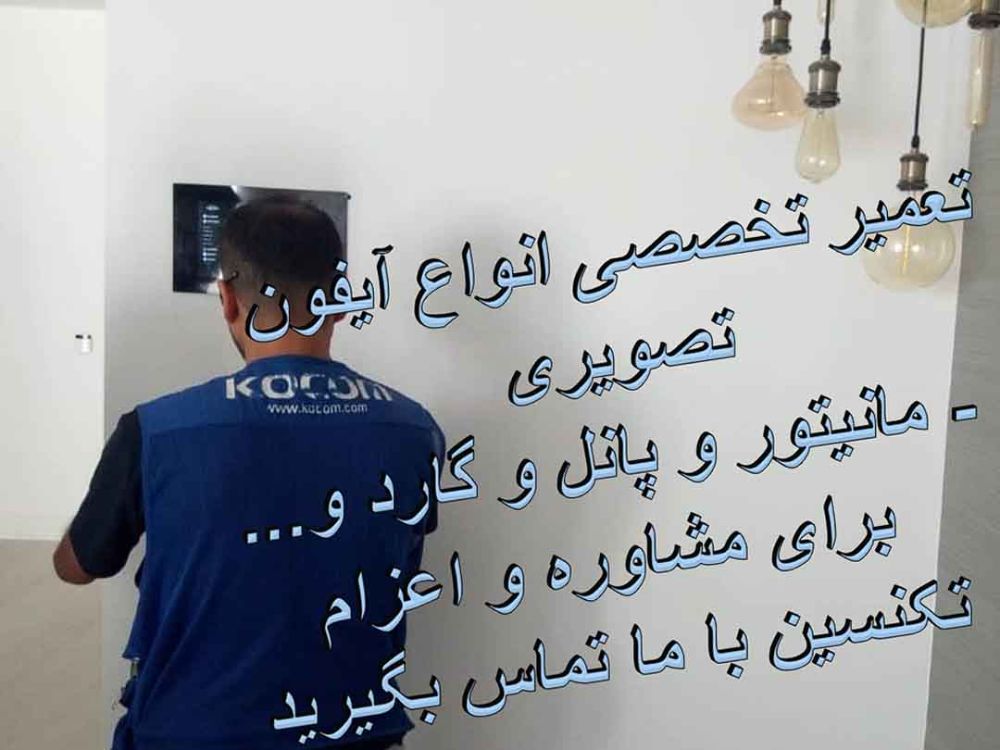 تعمیر تخصصی انواع آیفون
تصویری
- مانیتور و پانل و گارد و...
برای مشاوره و اعزام
تکنسین با ما تماس بگیرید
KOCOM
www.kocom.com